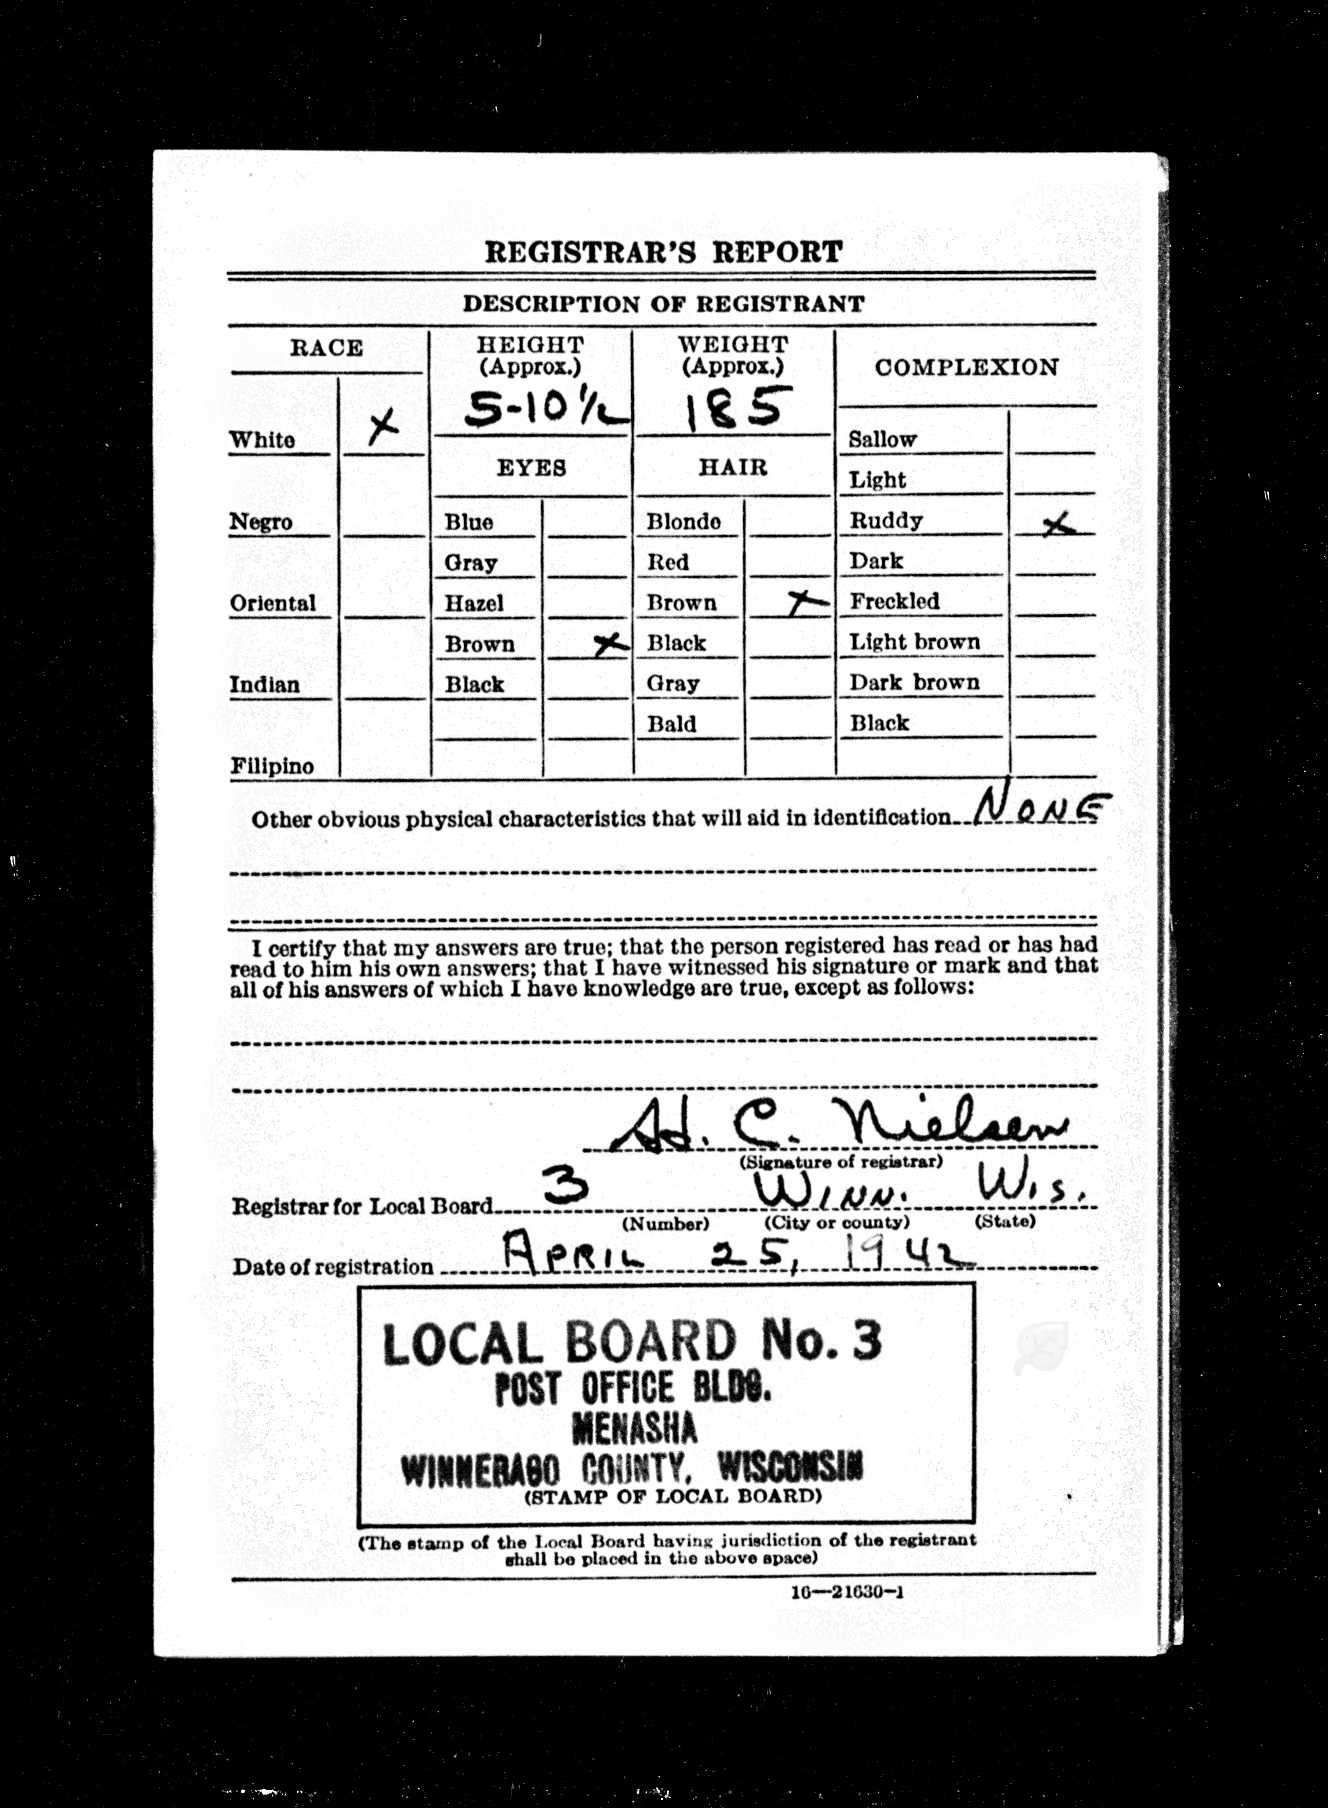 REGISTRAR'S REPORT
DESCRIPTION OF REGISTRANT
RACE
HEIGHT
(Approx.)
5-10 1/2
WEIGHT
(Approx.)
185
COMPLEXION
White X
Negro
Oriental
Indian
Filipino
EYES
Blue
Gray
Hazel
Brown X
Black
HAIR
Blonde
Red
Brown X
Black
Gray
Bald
Sallow
Light
Ruddy X
Dark
Freckled
Light brown
Dark brown
Black
Other obvious physical characteristics that will aid in identification NONE
I certify that my answers are true; that the person registered has read or has had
read to him his own answers; that I have witnessed his signature or mark and that
all of his answers of which I have knowledge are true, except as follows:
C. Nielsen
(Signature of registrar)
Registrar for Local Board 3 WINN. WIS.
(Number) (City or county) (State)
Date of registration APRIL 25, 1942
LOCAL BOARD No. 3
POST OFFICE BLDG.
MENASHA
WINNEBAGO COUNTY, WISCONSIN
(STAMP OF LOCAL BOARD)
(The stamp of the Local Board having jurisdiction of the registrant
shall be placed in the above space)
16—21630-1